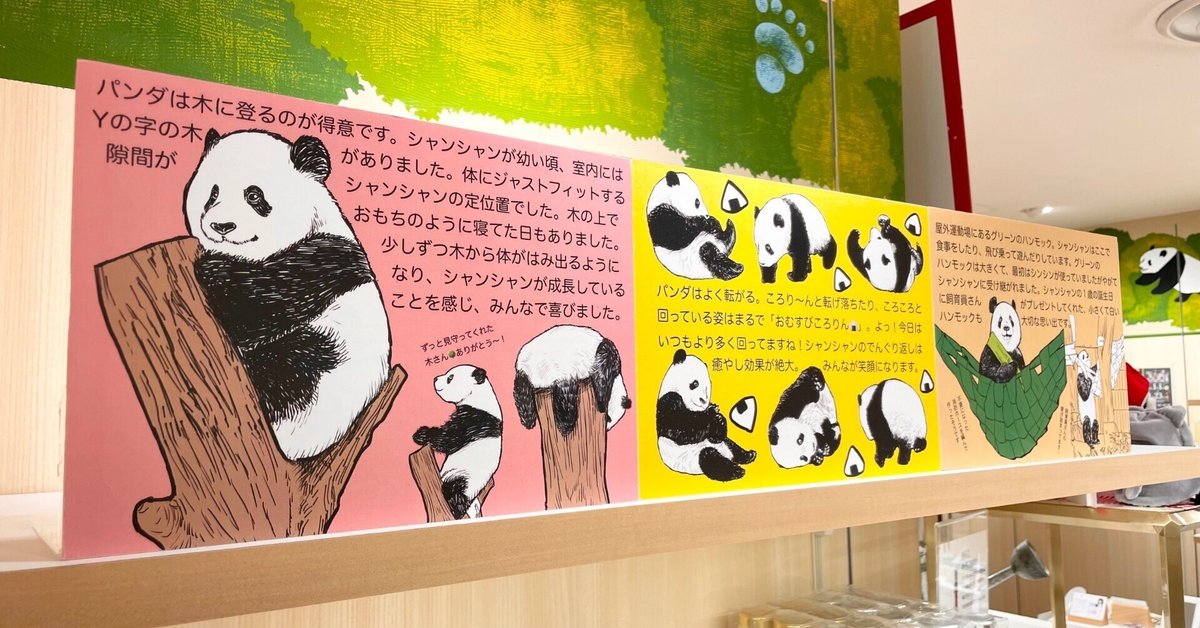 パンダは木に登るのが得意です。シャンシャンが幼い頃、室内には
Yの字の木がありました。体にジャストフィットする
隙間がシャンシャンの定位置でした。木の上で
おもちのように寝てた日もありました。
少しずつ木から体がはみ出るように
なり、シャンシャンが成長している
ことを感じ、みんなで喜びました。
ずっと見守ってくれた
木さんありがとう〜!
パンダはよく転がる。ころり〜んと転げ落ちたり、ころころと
回っている姿はまるで「おむすびころりん🍙」。よっ!今日は
いつもより多く回ってますね!シャンシャンのでんぐり返しは
癒やし効果が絶大。みんなが笑顔になります。
屋外運動場にあるグリーンのハンモック。シャンシャンはここで
食事をしたり、飛び乗って遊んだりしています。グリーンの
ハンモックは大きくて、最初はシンシンが使っていましたがやがて
シャンシャンに受け継がれました。シャンシャンの1歳の誕生日
に飼育員さんがプレゼントしてくれた、小さくて白い
ハンモックも大切な思い出です。